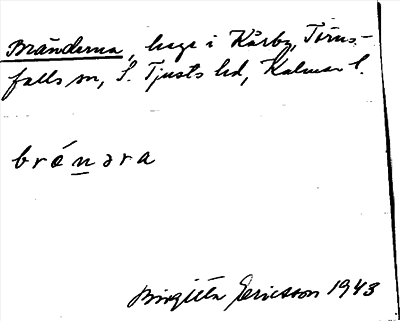 Bränderna, hage i Kårby, Törns-
falls sn, S. Tjusts hd, Kalmar l.
brénəra
Birgitta Ericsson 1943